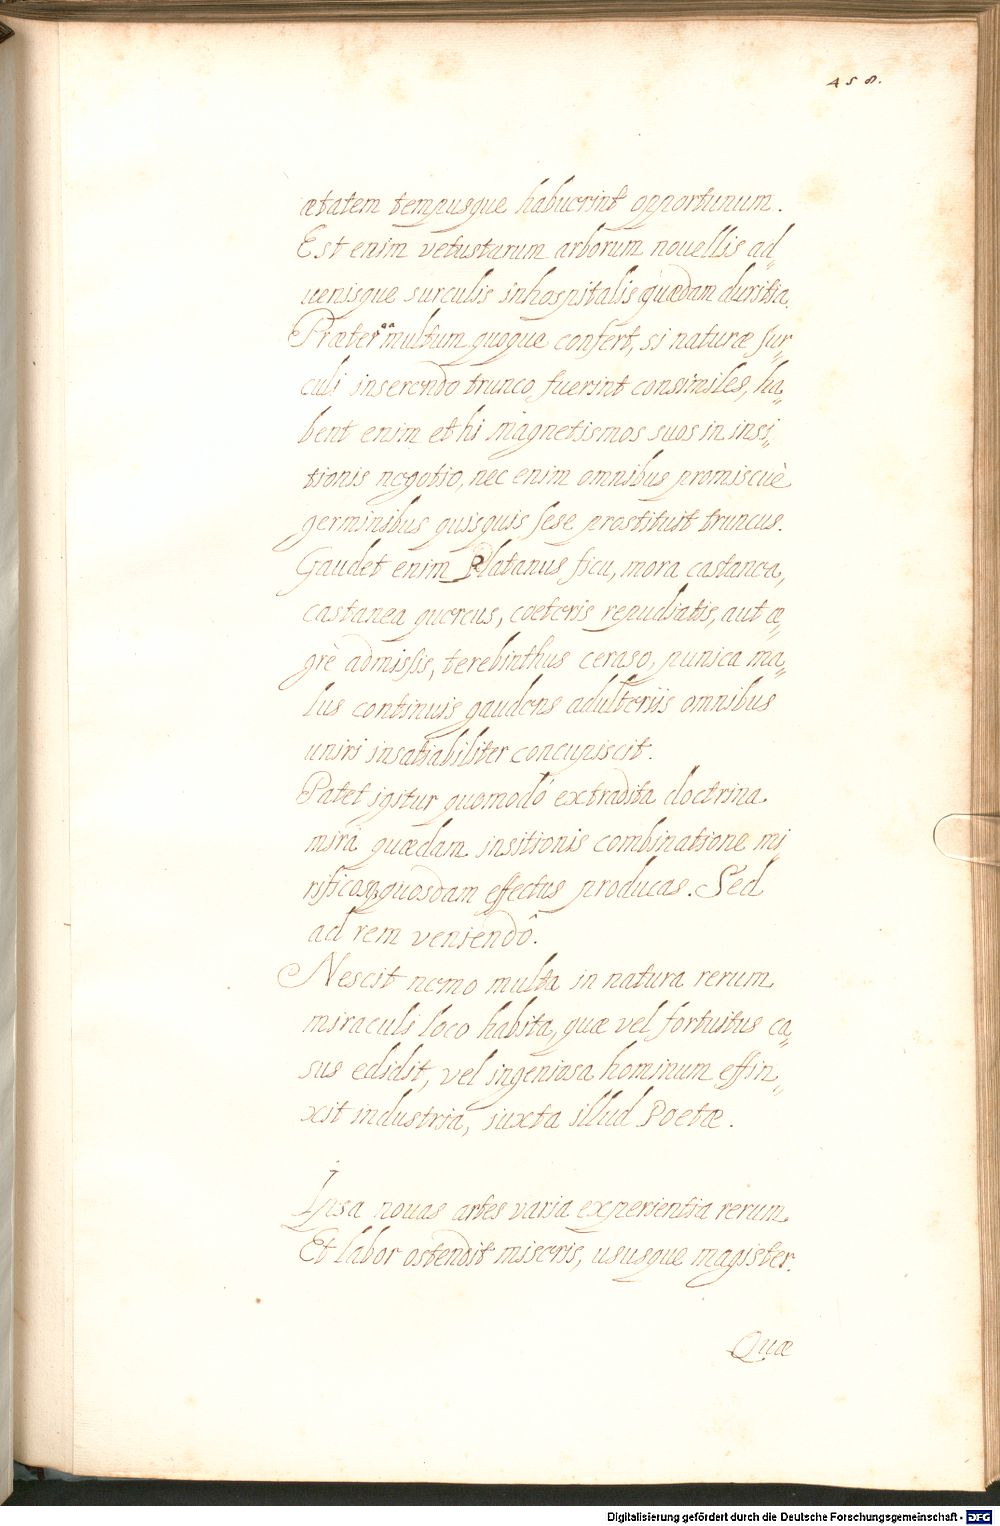 458.
ætatem tempusque habuerint opportunum.
Est enim vetustarum arborum nouellis ad„
uenisque surculis inhospitalis quædam duritia.
Præterea multum quoque confert, si naturæ sur„
culi inserendo trunco, fuerint consimiles, ha„
bent enim et hi magnetismos suos in insi„
tionis negotio, nec enim omnibus promiscuè
germinibus quisquis sese prostituit truncus.
Gaudet enim Platanus ficu, mora castanea,
castanea quercus, cæteris repudiatis, aut æ„
grè admissis, terebinthus ceraso, punica ma„
lus continuis gaudens adulteriis omnibus
uniri insatiabiliter concupiscit.
Patet igitur quomodó ex tradita doctrina
mirâ quædam insitionis combinatione mi„
rificos quosdam effectus producas. Sed
ad rem veniendô.
Nescit nemo multa in natura rerum
miraculi loco habita, quæ vel fortuitus ca„
sus edidit, vel ingeniosa hominum effin„
xit industria, iuxta illud Poetæ.
Ipsa nouas artes varia experientia rerum
Et labor ostendit miseris, ususque magister.
Quæ
Digitalisierung gefördert durch die Deutsche Forschungsgemeinschaft - DFG